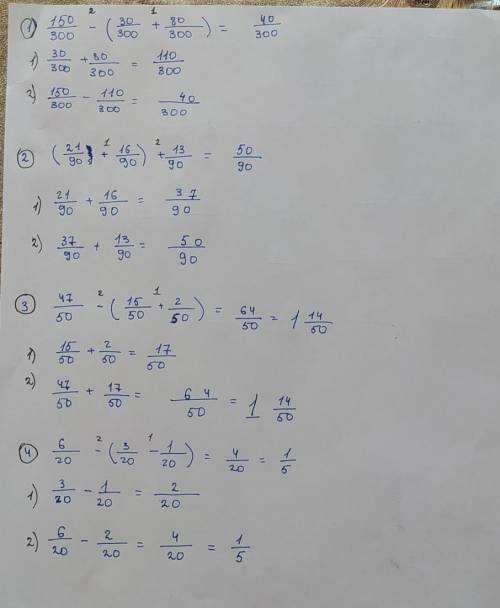 1) 150/300 -² (30/300 +¹ 80/300) = 40/300
1) 30/300 + 80/300 = 110/300
2) 150/300 - 110/300 = 40/300
2 (21/90 +¹ 16/90) +² 13/90 = 50/90
1) 21/90 + 16/90 = 37/90
2) 37/90 + 13/90 = 50/90
3 47/50 -² (15/50 +¹ 2/50) = 64/50 = 1 14/50
1) 15/50 + 2/50 = 17/50
2) 47/50 + 17/50 = 64/50 = 1 14/50
4 6/20 -² (3/20 -¹ 1/20) = 4/20 = 1/5
1) 3/20 - 1/20 = 2/20
2) 6/20 - 2/20 = 4/20 = 1/5